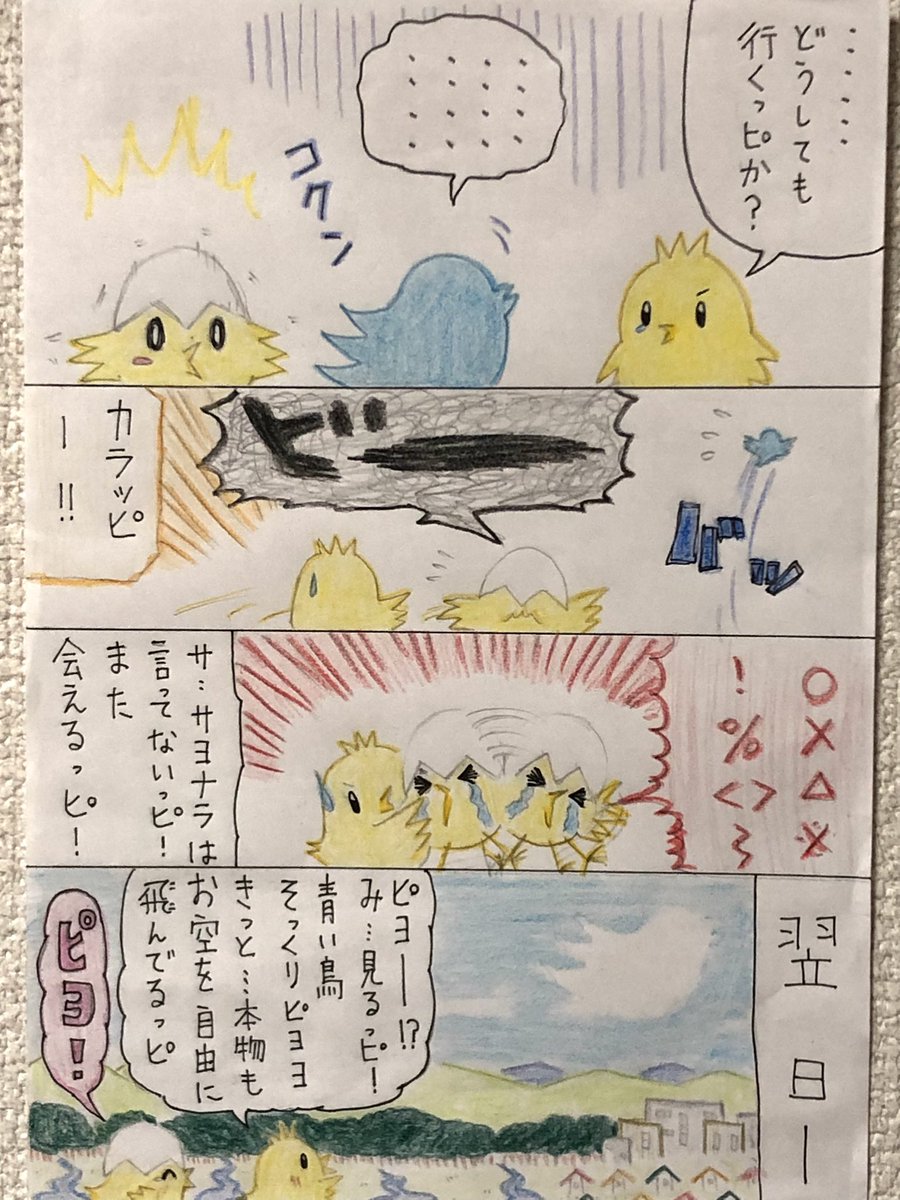 ……
どうしても
行くっピか?
……
コクン
バッ
ビー
カラッピ
ー!!
○×△※
!%<>~
サ…サヨナラは
言ってないっピ!
また
会えるっピ!
翌日ー
ピヨー!?
み…見るっピ!
青い鳥
そっくりピヨヨ
きっと…本物も
お空を自由に
飛んでるっピ
ピヨ!